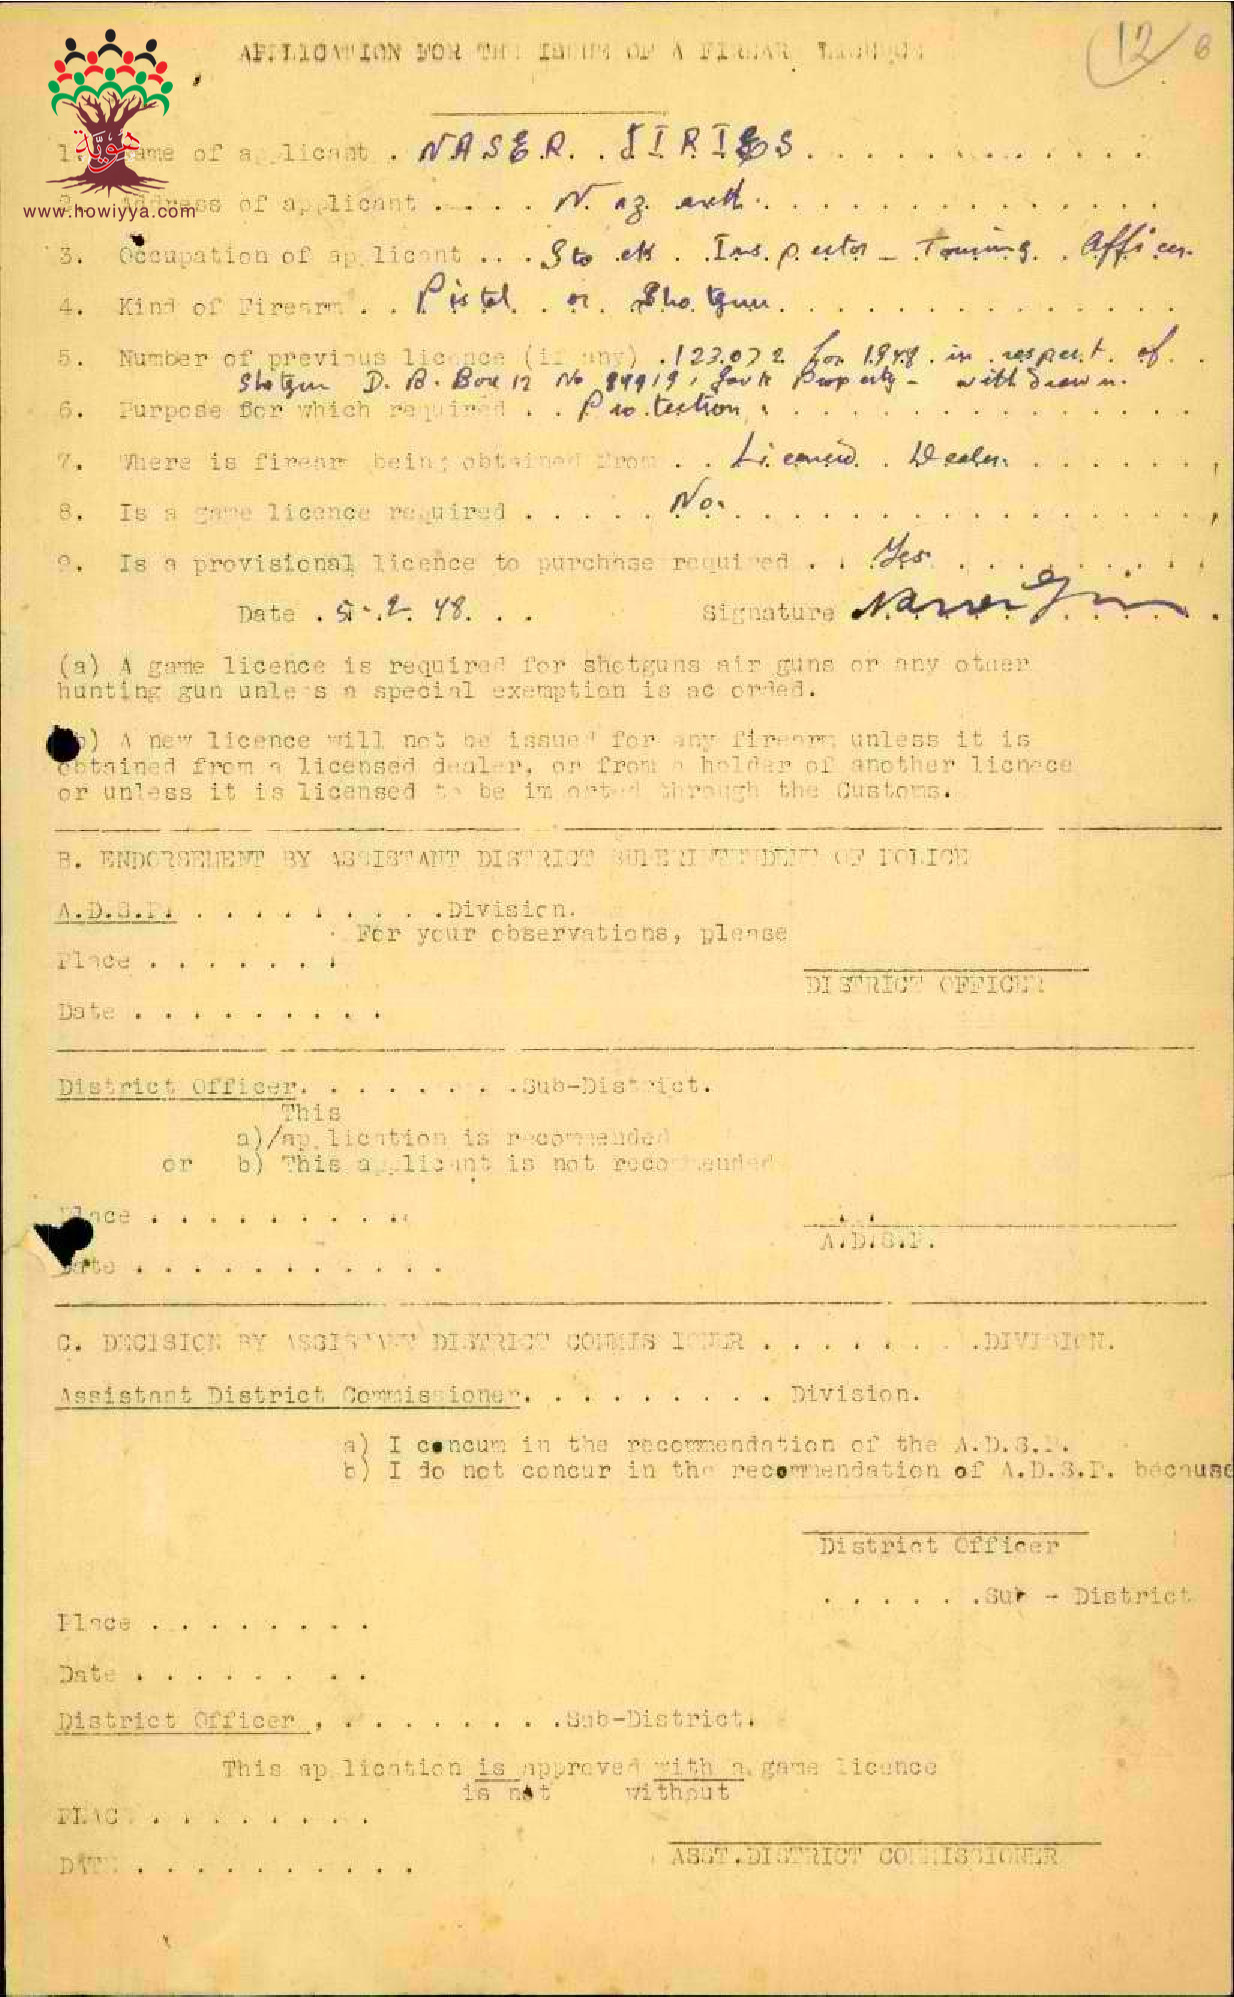 12 6
APPLICATION FOR THE ISSUE OF A FIREARM LICENCE
هوية
www.howiyya.com
1. Name of applicant . NASER JIRIES
2. Address of applicant . . . . Nazareth
3. Occupation of applicant . . . Stock Inspector – Touring Officer.
4. Kind of Firearm . . Pistol or Shotgun
5. Number of previous licence (if any) . 123072 for 1948 in respect of
Shotgun D. B. Bore 12 No 89919, Govt Property – withdrawn.
6. Purpose for which required . . Protection
7. Where is firearm being obtained from . . Licensed Dealer.
8. Is a game licence required . . . . . No.
9. Is a provisional licence to purchase required . . Yes
Date . 5-2-48. . . Signature
(a) A game licence is required for shotguns air guns or any other
hunting gun unless a special exemption is accorded.
(b) A new licence will not be issued for any firearm unless it is
obtained from a licensed dealer, or from a holder of another licnece
or unless it is licensed to be imported through the Customs.
B. ENDORSEMENT BY ASSISTANT DISTRICT SUPERINTENDENT OF POLICE
A.D.S.P. . . . . . . . . . .Division.
For your observations, please
Place . . . . . . .
DISTRICT OFFICER
Date . . . . . . . . .
District Officer. . . . . . . . .Sub-District.
This
a)/application is recommended
or b) This applicant is not recommended
Place . . . . . . . . . .
A.D.S.P.
Date . . . . . . . . . . .
C. DECISION BY ASSISTANT DISTRICT COMMISSIONER . . . . . . . .DIVISION.
Assistant District Commissioner. . . . . . . . . Division.
a) I concum in the recommendation of the A.D.S.P.
b) I do not concur in the recommendation of A.D.S.P. because
District Officer
. . . . . .Sub - District
Place . . . . . . . .
Date . . . . . . . .
District Officer , . . . . . . . .Sub-District.
This application is approved with a game licence
is not without
PLACE . . . . . . . .
ASST.DISTRICT COMMISSIONER
DATE . . . . . . . . . .